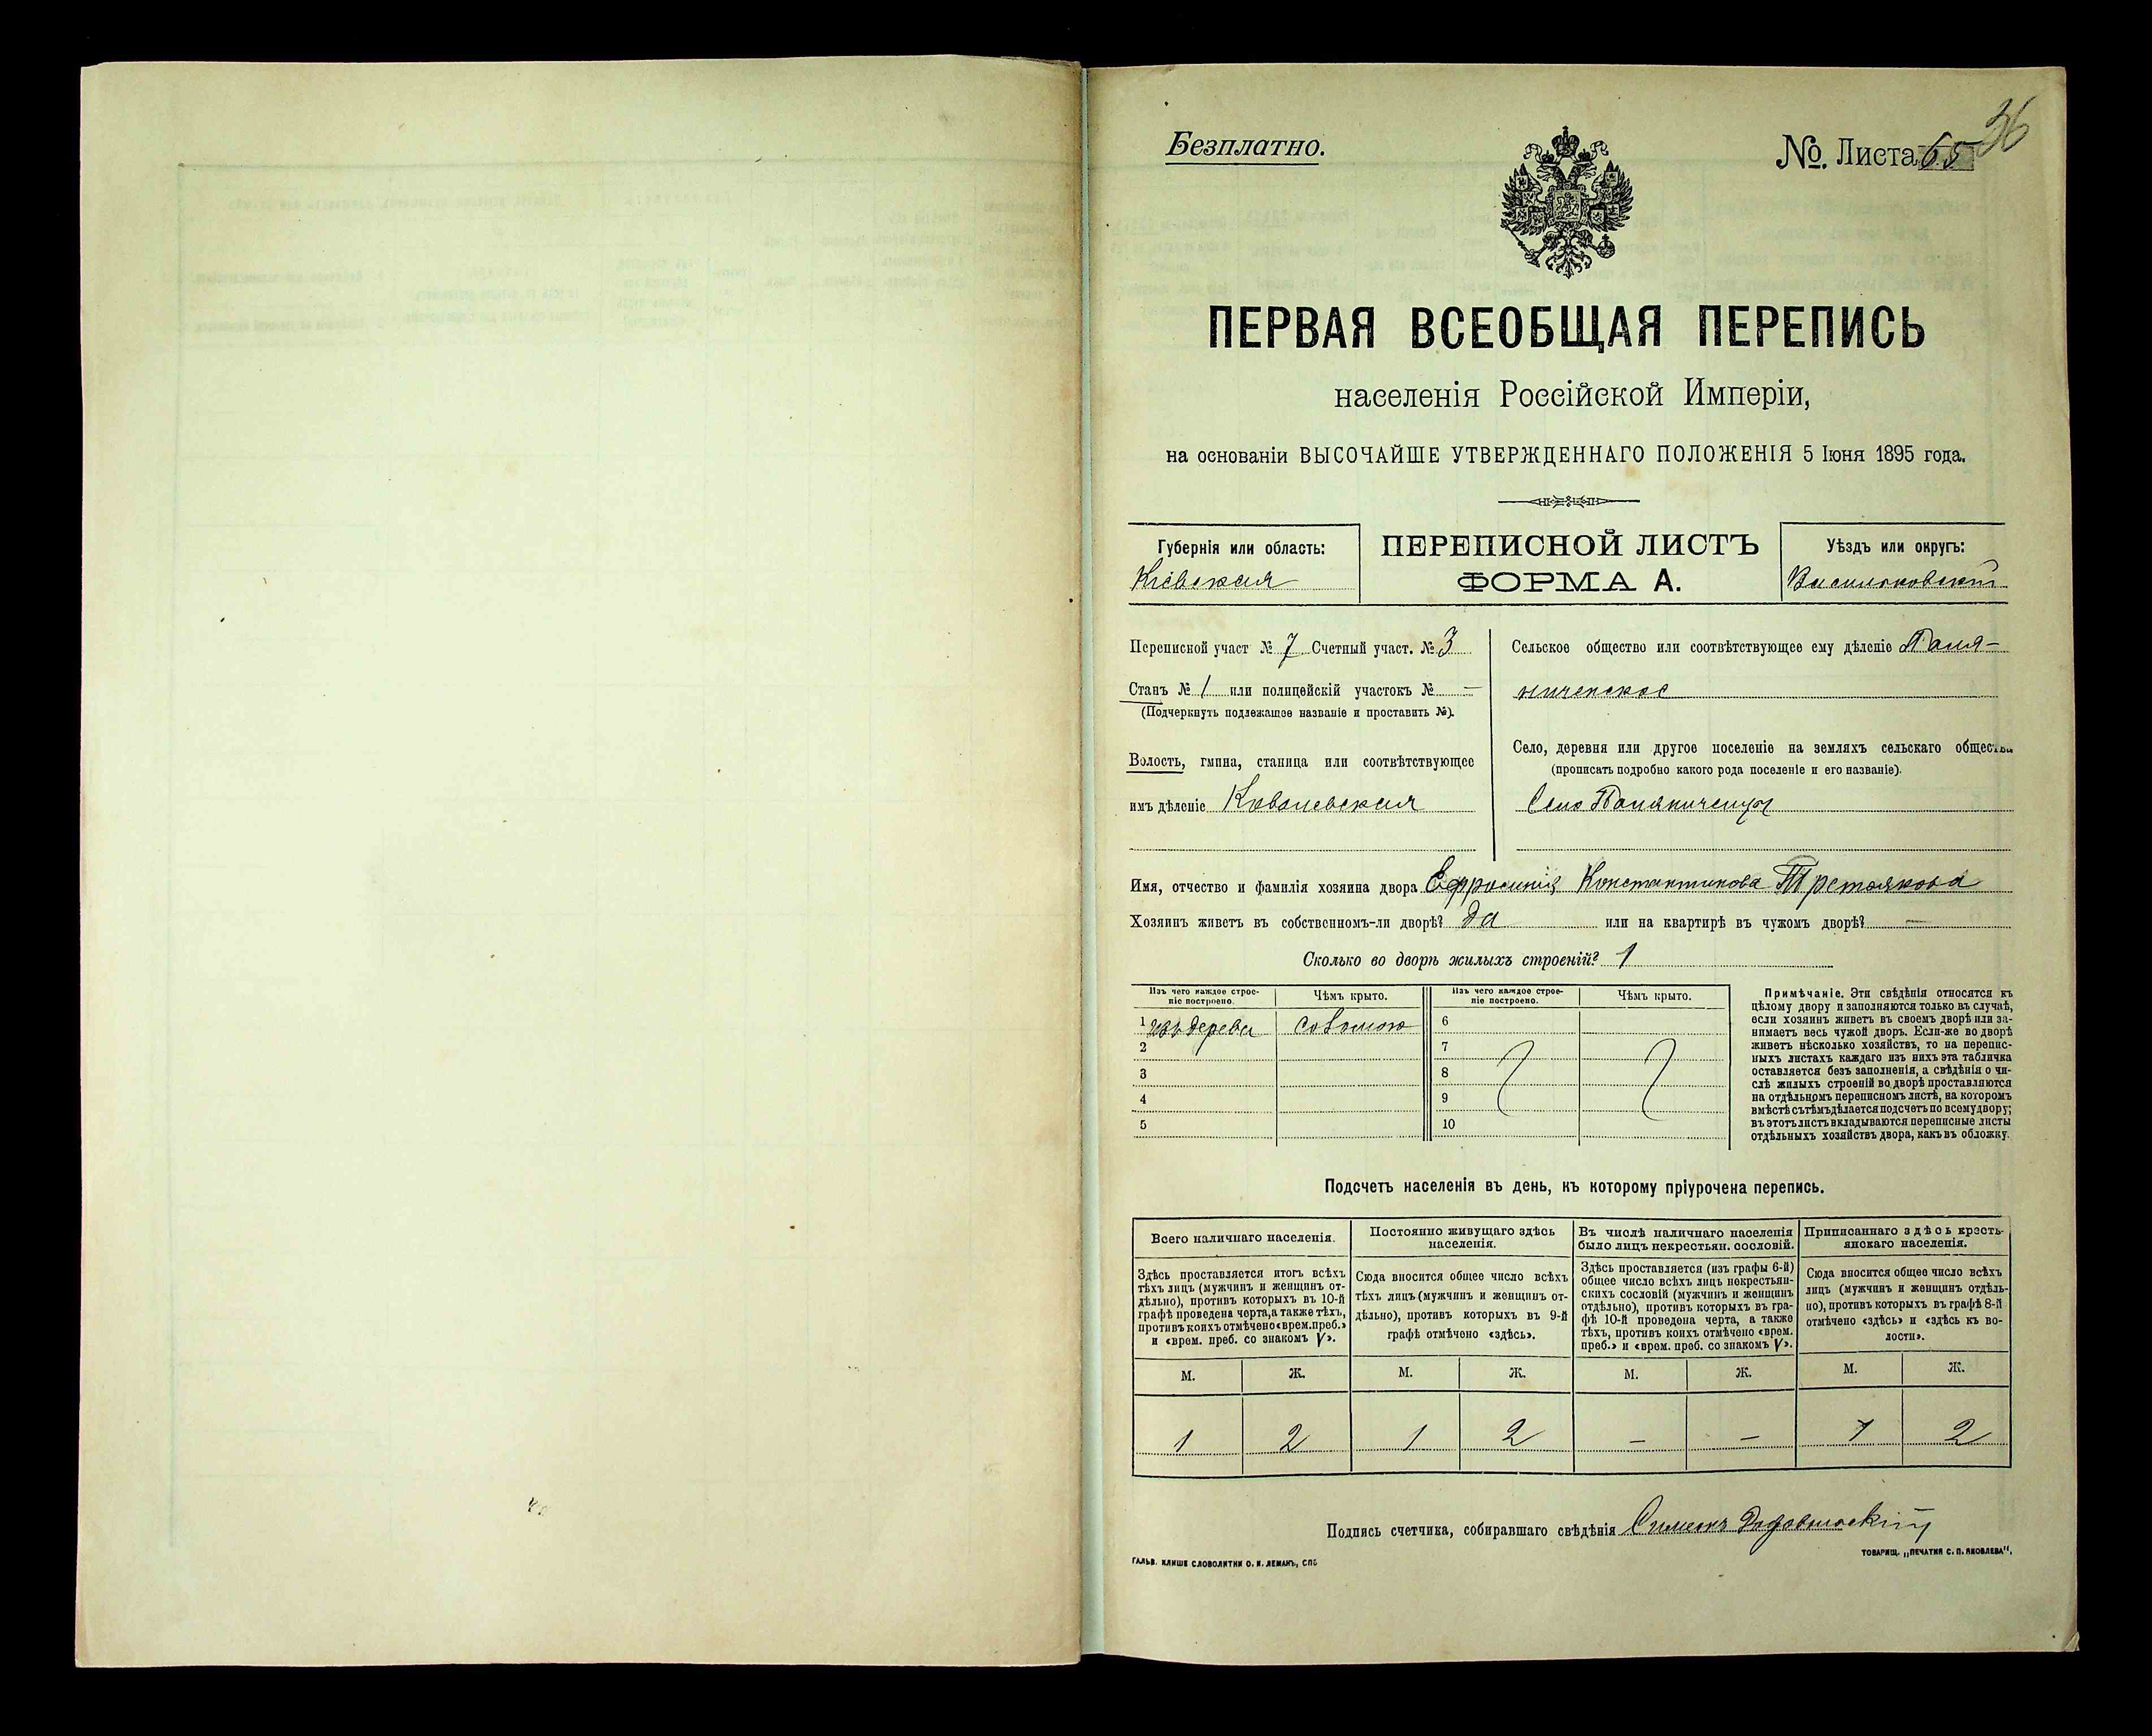 36
Безплатно.
№. Листа 65
ПЕРВАЯ ВСЕОБЩАЯ ПЕРЕПИСЬ
населенія Россійской Имперіи,
на основаніи ВЫСОЧАЙШЕ УТВЕРЖДЕННАГО ПОЛОЖЕНІЯ 5 Іюня 1895 года.
Губернія или область:
Кіевская
ПЕРЕПИСНОЙ ЛИСТЪ
ФОРМА А.
Уѣздъ или округъ:
Васильковскій
Переписной участ № 7 Счетный участ. № 3
Станъ № 1 или полицейскій участокъ № —
(Подчеркнуть подлежащее названіе и проставить №).
Волость, гмина, станица или соотвѣтствующее
имъ дѣленіе Ковалевская
Сельское общество или соотвѣтствующее ему дѣленіе Паля-
ниченское
Село, деревня или другое поселеніе на земляхъ сельскаго общества
(прописать подробно какого рода поселеніе и его названіе).
Село Паляниченцы
Имя, отчество и фамилія хозяина двора Ефросинія Константинова Третьякова
Хозяинъ живетъ въ собственномъ-ли дворѣ? да или на квартирѣ въ чужомъ дворѣ? —
Сколько во дворѣ жилыхъ строеній? 1
Изъ чего каждое строе-
ніе построено.
Чѣмъ крыто.
Изъ чего каждое строе-
ніе построено.
Чѣмъ крыто.
1 изъ дерева соломою 6
2 7
3 8
4 9
5 10
Примѣчаніе. Эти свѣдѣнія относятся къ
цѣлому двору и заполняются только въ случаѣ,
если хозяинъ живетъ въ своемъ дворѣ или за-
нимаетъ весь чужой дворъ. Если-же во дворѣ
живетъ нѣсколько хозяйствъ, то на перепис-
ныхъ листахъ каждаго изъ нихъ эта табличка
оставляется безъ заполненія, а свѣдѣнія о чи-
слѣ жилыхъ строеній во дворѣ проставляются
на отдѣльномъ переписномъ листѣ, на которомъ
вмѣстѣ съ тѣмъ дѣлается подсчетъ по всему двору;
въ этотъ листъ вкладываются переписные листы
отдѣльныхъ хозяйствъ двора, какъ въ обложку.
Подсчетъ населенія въ день, къ которому пріурочена перепись.
Всего наличнаго населенія.
Здѣсь проставляется итогъ всѣхъ
тѣхъ лицъ (мужчинъ и женщинъ от-
дѣльно), противъ которыхъ въ 10-й
графѣ проведена черта, а также тѣхъ,
противъ коихъ отмѣчено «врем. преб.»
и «врем. преб. со знакомъ V».
Постоянно живущаго здѣсь
населенія.
Сюда вносится общее число всѣхъ
тѣхъ лицъ (мужчинъ и женщинъ от-
дѣльно), противъ которыхъ въ 9-й
графѣ отмѣчено «здѣсь».
Въ числѣ наличнаго населенія
было лицъ некрестьян. сословій.
Здѣсь проставляется (изъ графы 6-й)
общее число всѣхъ лицъ некрестьян-
скихъ сословій (мужчинъ и женщинъ
отдѣльно), противъ которыхъ въ гра-
фѣ 10-й проведена черта, а также
тѣхъ, противъ коихъ отмѣчено «врем.
преб.» и «врем. преб. со знакомъ V».
Приписаннаго здѣсь кресть-
янскаго населенія.
Сюда вносится общее число всѣхъ
лицъ (мужчинъ и женщинъ отдѣль-
но), противъ которыхъ въ графѣ 8-й
отмѣчено «здѣсь» и «здѣсь къ во-
лости».
М. Ж. М. Ж. М. Ж. М. Ж.
1 2 1 2 — — 1 2
Подпись счетчика, собиравшаго свѣдѣнія
ГАЛЬВ. КЛИШЕ СЛОВОЛИТНИ О. И. ЛЕМАНЪ, СПБ
ТОВАРИЩ. „ПЕЧАТНЯ С. П. ЯКОВЛЕВА".